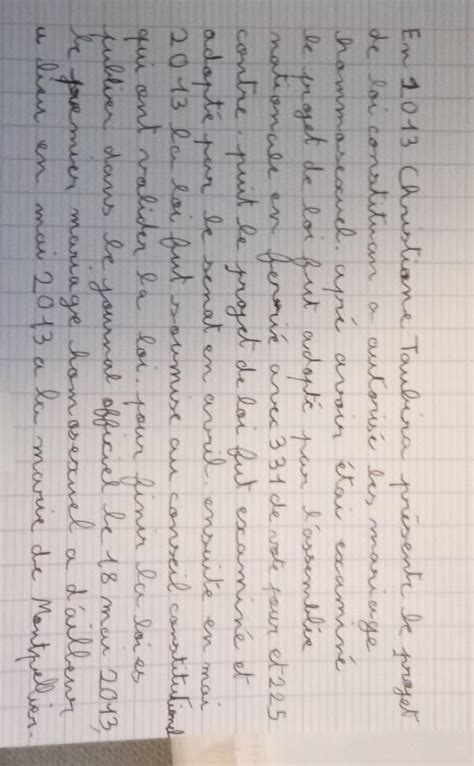 En 2013 Christiane Taubira présente le projet
de loi constituan a autorisé les mariage
hommosexuel. apré avoir étai examiné
le projet de loi fut adopté par l'assemblée
nationale en fevrié avec 331 de vote pour et 225
contre. puit le projet de loi fut examiné et
adopté par le senat en avril. ensuite en mai
2013 la loi fut soumise au conseil constitutionel
qui ont valider la loi. pour finir la loi es
publier dans le journal officiel le 18 mai 2013,
le premier mariage homosexuel a d'ailleur
a lieu en mai 2013 a la marie de Montpellier.